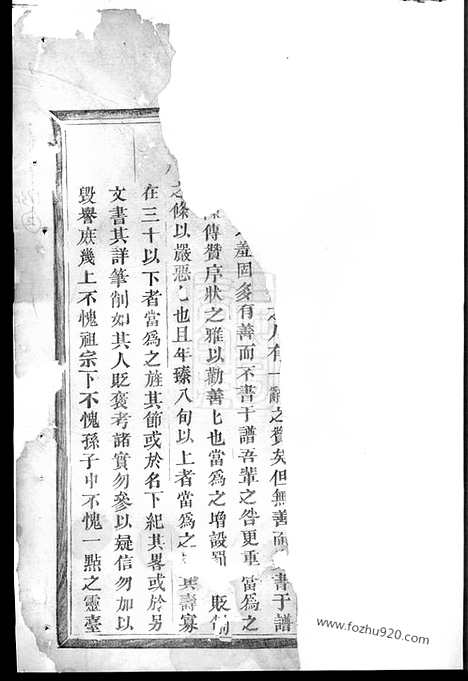 之人有一辭之贊矣但無善而書于譜
羞固多有善而不書于譜吾輩之咎更重當為之
傳贊序狀之雅以勸善也當為之增設 貶
之條以嚴惡也且年臻八旬以上者當為之 其壽寡
在三十以下者當為之旌其節或於名下紀其畧或於另
文書其詳筆削如其人貶褒考諸實勿參以疑信勿加以
毀譽庶幾上不愧祖宗下不愧孫子中不愧一點之靈臺
www.fozhu920.com